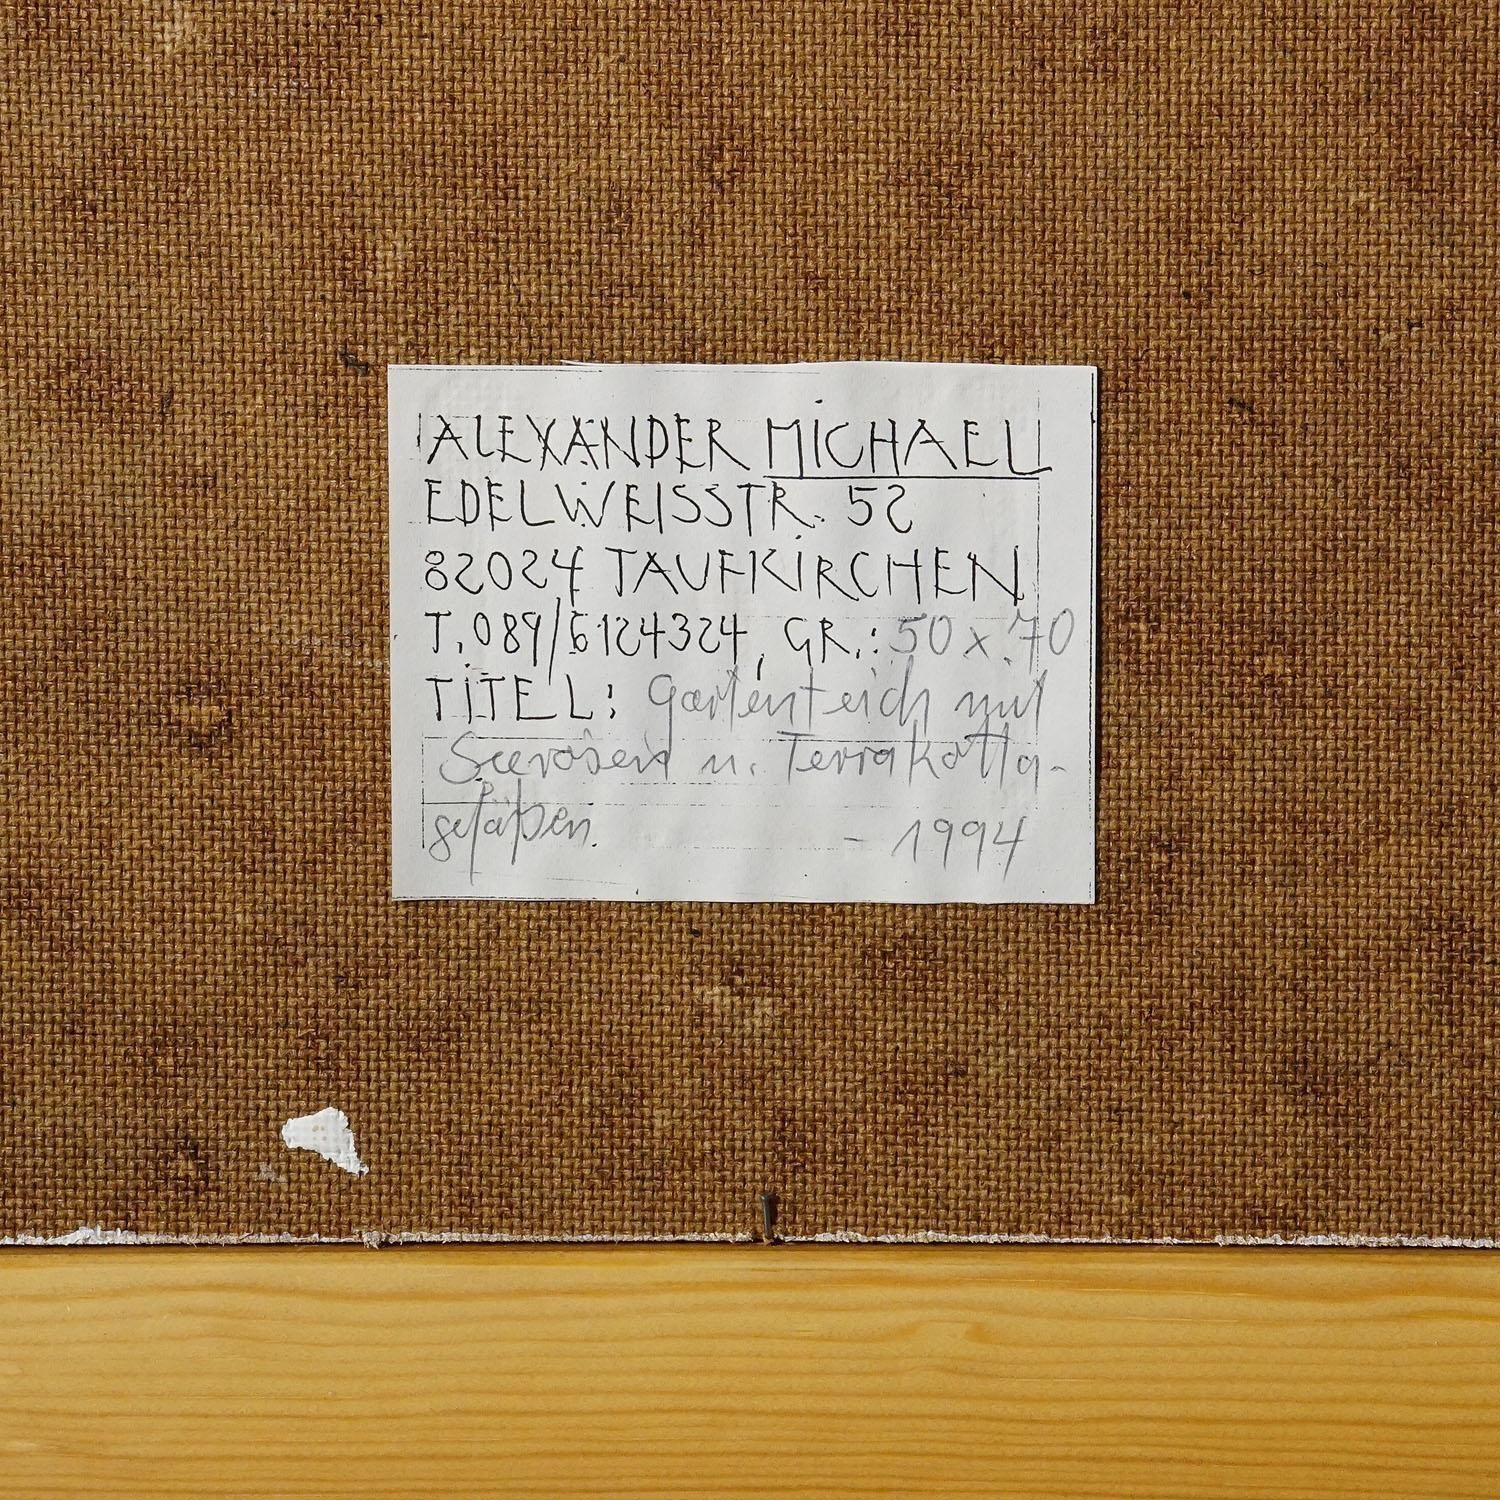 ALEXANDER MICHAEL
EDELWEISSTR. 52
82024 TAUFKIRCHEN
T. 089/6124324, GR.: 50 x 70
TITEL: Gartenteich mit
Seerosen u. Terrakotta-
gefäßen. - 1994